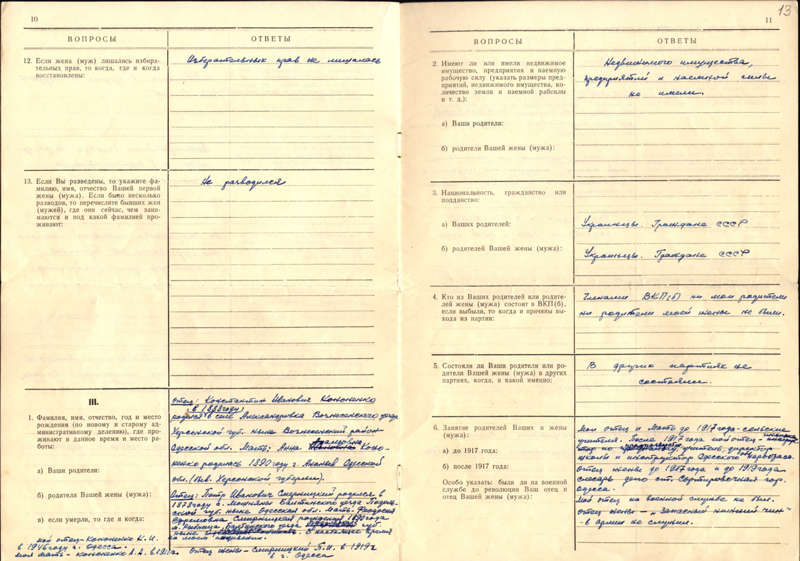 10
ВОПРОСЫ
ОТВЕТЫ
12. Если жена (муж) лишались избира-
тельных прав, то когда, где и когда
восстановлены:
Избирательных прав не лишалась
13. Если Вы разведены, то укажите фа-
милию, имя, отчество Вашей первой
жены (мужа). Если было несколько
разводов, то перечислите бывших жен
(мужей), где они сейчас, чем зани-
маются и под какой фамилией про-
живают:
Не разводился
III.
1. Фамилия, имя, отчество, год и место
рождения (по новому и старому ад-
министративному делению), где про-
живают в данное время и место ра-
боты:
а) Ваши родители:
б) родители Вашей жены (мужа):
в) если умерли, то где и когда:
Отец: Константин Иванович Кононенко
в 1888 году
родился в селе Александровка Вознесенского уезда
Херсонской губ. ныне Вознесенский район
Одесской обл. Мать: Анна Коно-
ненко родилась 1890 году г. Ананьев Одесской
обл. (быв. Херсонской губернии).
Отец: Петр Иванович Смирницкий родился в
1878 году м. Балтского уезда Подоль-
ской губ. ныне Одесской обл. Мать: Феодосия
Смирницкая
В настоящее время
мой отец - Кононенко К. И.
в 1946 году г. Одесса.
моя мать - Кононенко А. А. в
Отец жены - Смирницкий П. И. в 1919 г
в г. Одесса
13
11
ВОПРОСЫ
ОТВЕТЫ
2. Имеют ли или имели недвижимое
имущество, предприятия и наемную
рабочую силу (указать размеры пред-
приятий, недвижимого имущества, ко-
личество земли и наемной рабсилы
и т. д.):
а) Ваши родители:
б) родители Вашей жены (мужа):
Недвижимого имущества,
предприятий и наемной силы
не имели.
3. Национальность, гражданство или
подданство:
а) Ваших родителей:
Украинцы. Граждане СССР
б) родителей Вашей жены (мужа):
Украинцы. Граждане СССР
4. Кто из Ваших родителей или родите-
лей жены (мужа) состоит в ВКП(б),
если выбыли, то когда и причины вы-
хода из партии:
Членами ВКП(б) ни мои родители
ни родители моей жены не были.
5. Состояли ли Ваши родители или ро-
дители Вашей жены (мужа) в других
партиях, когда, в какой именно:
В других партиях не
состояли.
6. Занятие родителей Ваших и жены
(мужа):
а) до 1917 года:
б) после 1917 года:
Особо указать: были ли на военной
службе до революции Ваш отец и
отец Вашей жены (мужа):
Мои отец и мать до 1917 года - сельские
учителя. После 1917 года мой отец -
учитель, директор
школы и инспектор Одесского
Отец жены до 1917 года и до 1919 года
слесарь депо ст. Сортировочная гор.
Одесса.
Мой отец на военной службе не был.
Отец жены - „Запасный нижний чин"
в армии не служил.